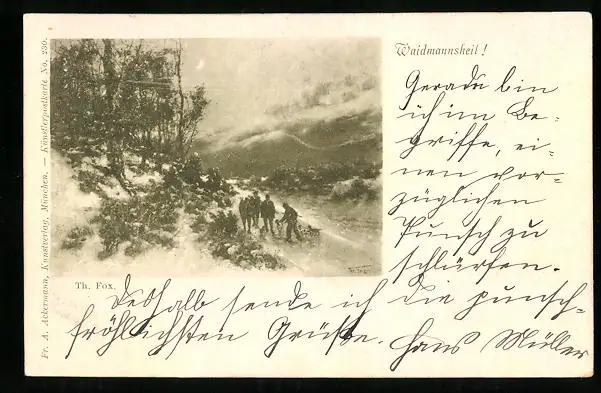 Fr. A. Ackermann, Kunstverlag, München. — Künstlerpostkarte No. 230.
Waidmannsheil!
Gerade bin
ich im Be-
griffe, ei-
nen vor-
züglichen
Punsch zu
schlürfen.
Th. Fox.
Deshalb sende ich die punsch-
fröhlichsten Grüße. Hans Müller